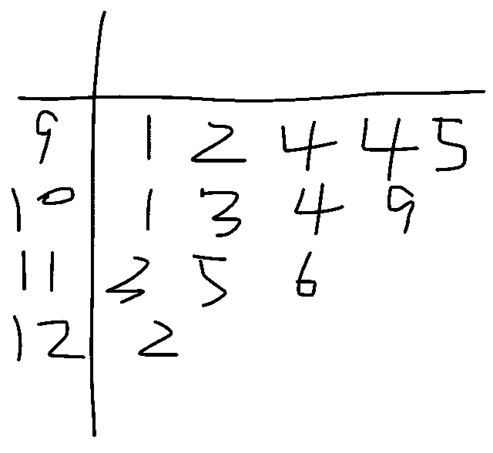 9 | 1 2 4 4 5
10 | 1 3 4 9
11 | 3 5 6
12 | 2